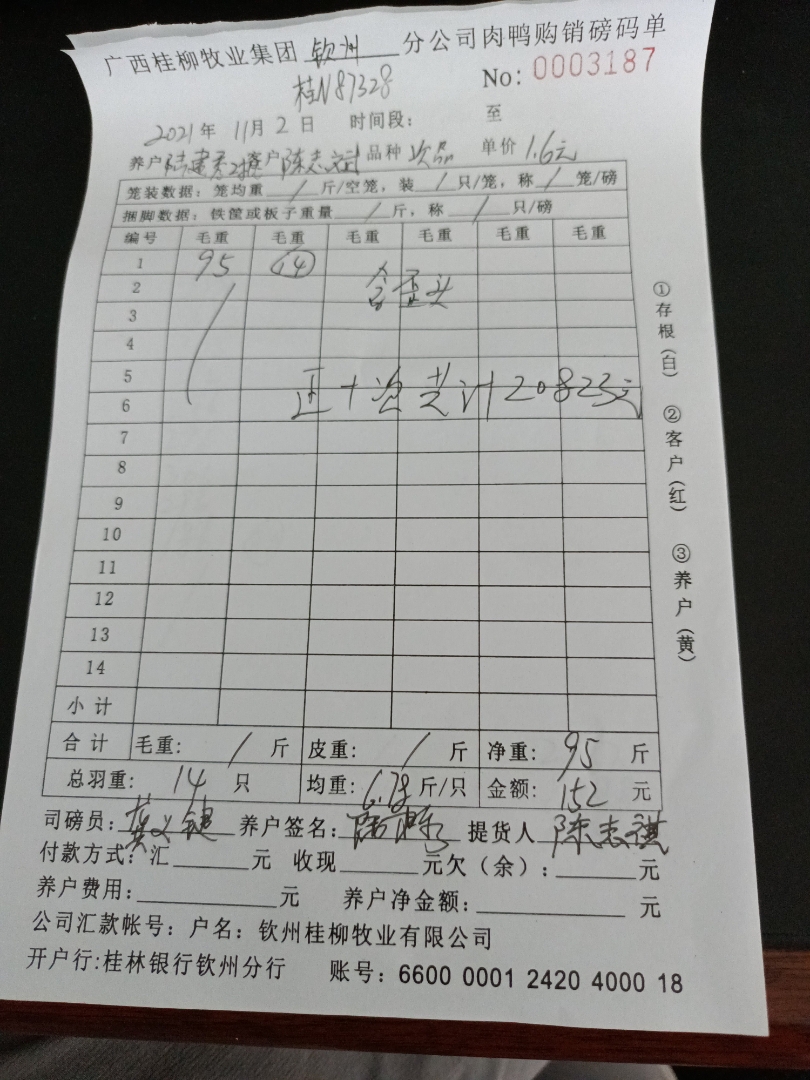 广西桂柳牧业集团 钦州 分公司肉鸭购销磅码单
桂N87328 No: 0003187
2021年 11月 2 日 时间段: 至
养户 客户 陈志斌 品种 次品 单价 1.6元
笼装数据: 笼均重 / 斤/空笼, 装 / 只/笼, 称 / 笼/磅
捆脚数据: 铁筐或板子重量 / 斤, 称 / 只/磅
编号 毛重 毛重 毛重 毛重 毛重 毛重
1 95 14
2 含歪头
3
4
5
正+次共计20823元
6
7
8
9
10
11
12
13
14
小计
合计 毛重: / 斤 皮重: / 斤 净重: 95 斤
总羽重: 14 只 均重: 6.78 斤/只 金额: 152 元
司磅员: 养户签名: 提货人 陈志祺
付款方式: 汇 元 收现 元欠(余): 元
养户费用: 元 养户净金额: 元
公司汇款帐号: 户名: 钦州桂柳牧业有限公司
开户行:桂林银行钦州分行 账号: 6600 0001 2420 4000 18
①存根(白) ②客户(红) ③养户(黄)